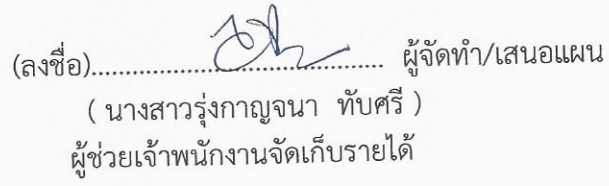 (ลงชื่อ)................................................ ผู้จัดทำ/เสนอแผน
( นางสาวรุ่งกาญจนา ทับศรี )
ผู้ช่วยเจ้าพนักงานจัดเก็บรายได้